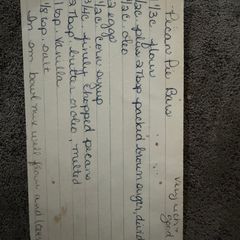 Pecan Pie Bars
very rich +
good
1/3 c flour
1/2 c. plus 2 Tbsp packed brown sugar, divid
1/2 c. oleo
2 eggs
1/2 c. corn syrup
3/4 c. finely chopped pecans
2 Tbsp butter or oleo, melted
1 tsp vanilla
1/8 tsp salt
In sm bowl mix well flour and